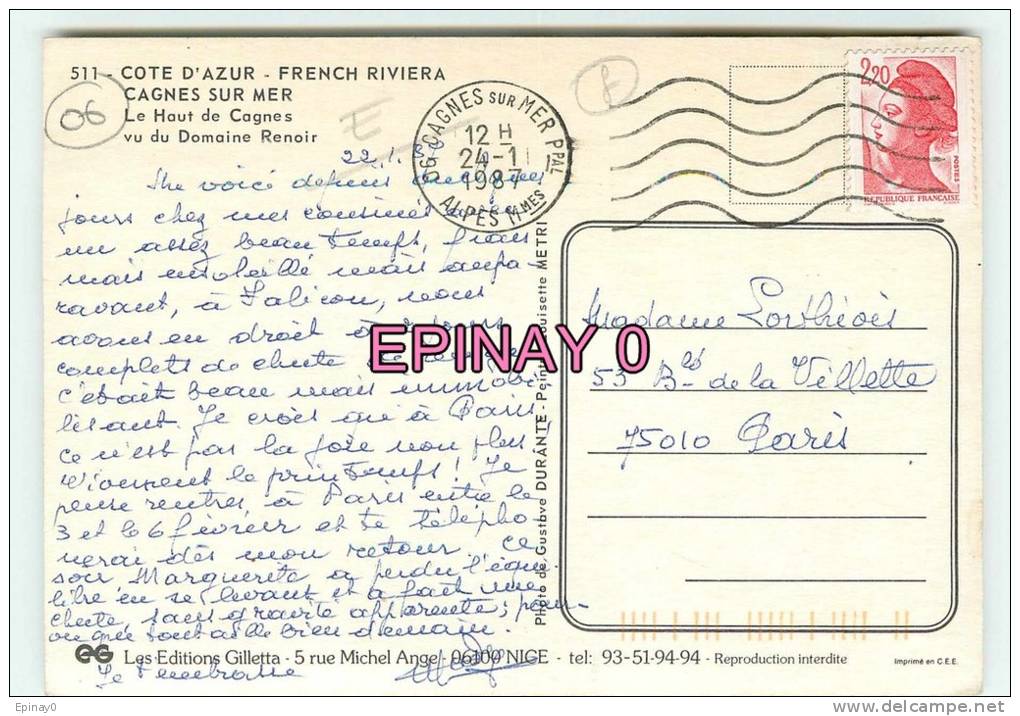 511 - COTE D'AZUR - FRENCH RIVIERA
CAGNES SUR MER
Le Haut de Cagnes
vu du Domaine Renoir
06
06 CAGNES SUR MER PPAL
12 H
24-1
1987
ALPES MMES
2,20
POSTES
REPUBLIQUE FRANÇAISE
22.1.
Me voici depuis quelques
jours chez mes cousines avec
un assez beau temps, frais
mais ensoleillé mais aupa-
ravant, à Falicon, nous
avons eu droit à jours
complets de chute de neige
c'était beau mais immobi-
lisant. Je crois qu'à Paris
ce n'est pas la joie non plus
Vivement le printemps! Je
pense rentrer à Paris entre le
3 et le 6 février et te télépho-
nerai dès mon retour. Ce
soir Marguerite a perdu l'équi-
libre en se levant et a fait une
chute sans gravité apparente; pour-
vu que tout aille bien demain.
Je t'embrasse
EPINAY 0
Photo de Gustave DURANTE - Peint Louisette METRI
Madame Lorthiois
53 Bd de la Villette
75010 Paris
EG Les Editions Gilletta - 5 rue Michel Ange - 06100 NICE - tel: 93-51-94-94 - Reproduction interdite
Imprimé en C.E.E.
Epinay0
delcampe.net